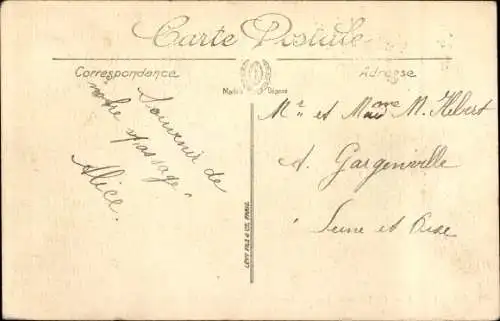 Carte Postale
Correspondance
Adresse
Marque Déposée
Souvenir de
notre passage
Alice.
Mr et Mme M. Hebert
A. Gargenville
Seine et Oise
LÉVY FILS & CIE, PARIS.